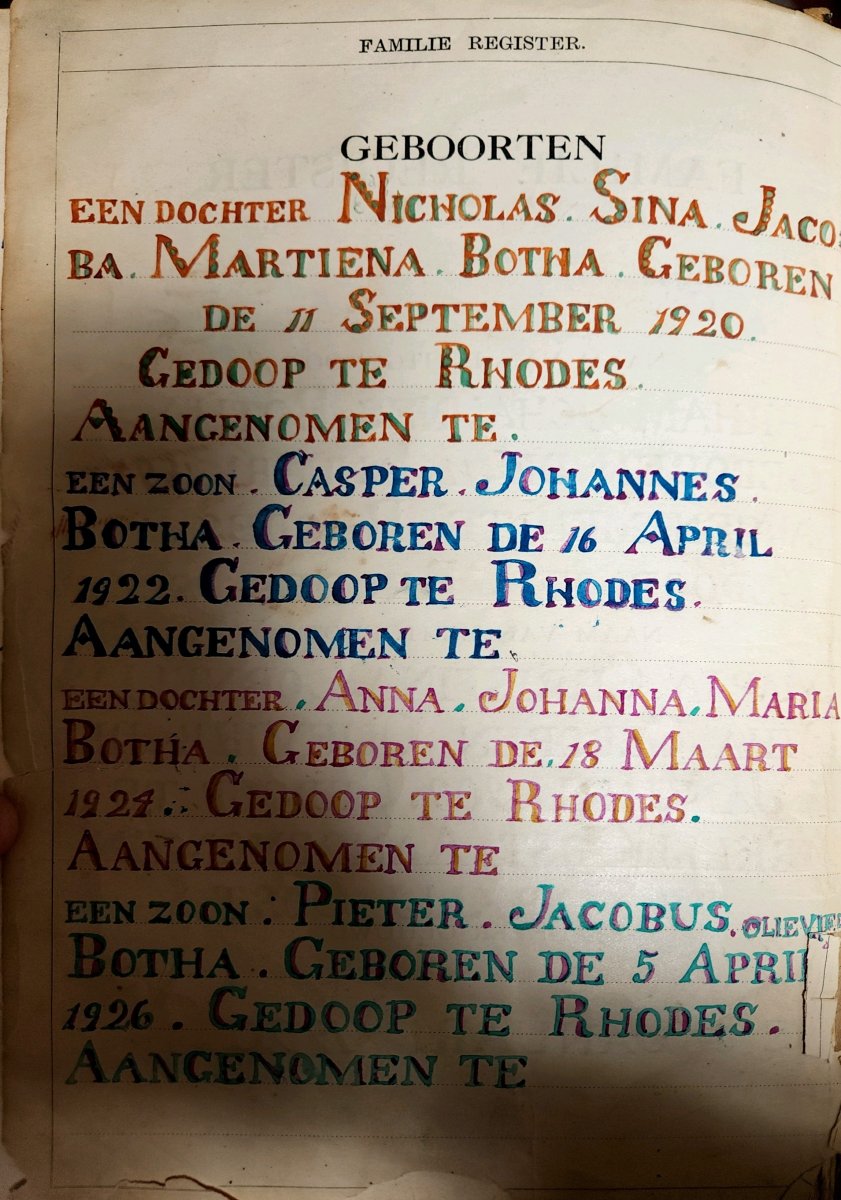 FAMILIE REGISTER.
GEBOORTEN
EEN DOCHTER NICHOLAS. SINA. JACO:
BA. MARTIENA. BOTHA. GEBOREN
DE 11 SEPTEMBER 1920.
GEDOOP TE RHODES.
AANGENOMEN TE.
EEN ZOON. CASPER. JOHANNES.
BOTHA. GEBOREN DE 16 APRIL
1922. GEDOOP TE RHODES.
AANGENOMEN TE.
EEN DOCHTER. ANNA. JOHANNA. MARIA
BOTHA. GEBOREN DE. 18 MAART
1924. GEDOOP TE RHODES.
AANGENOMEN TE
EEN ZOON: PIETER. JACOBUS.
BOTHA. GEBOREN DE 5 APRIL
1926. GEDOOP TE RHODES.
AANGENOMEN TE